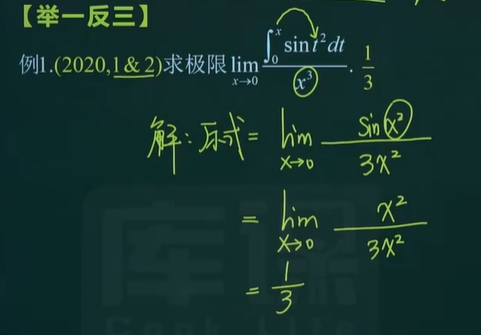 【举一反三】
例1.(2020,1 & 2)求极限 lim_{x→0} \frac{∫_0^x sin t² dt}{x³}. \frac{1}{3}
解: 原式 = lim_{x→0} \frac{sin x²}{3x²}
= lim_{x→0} \frac{x²}{3x²}
= \frac{1}{3}
库课